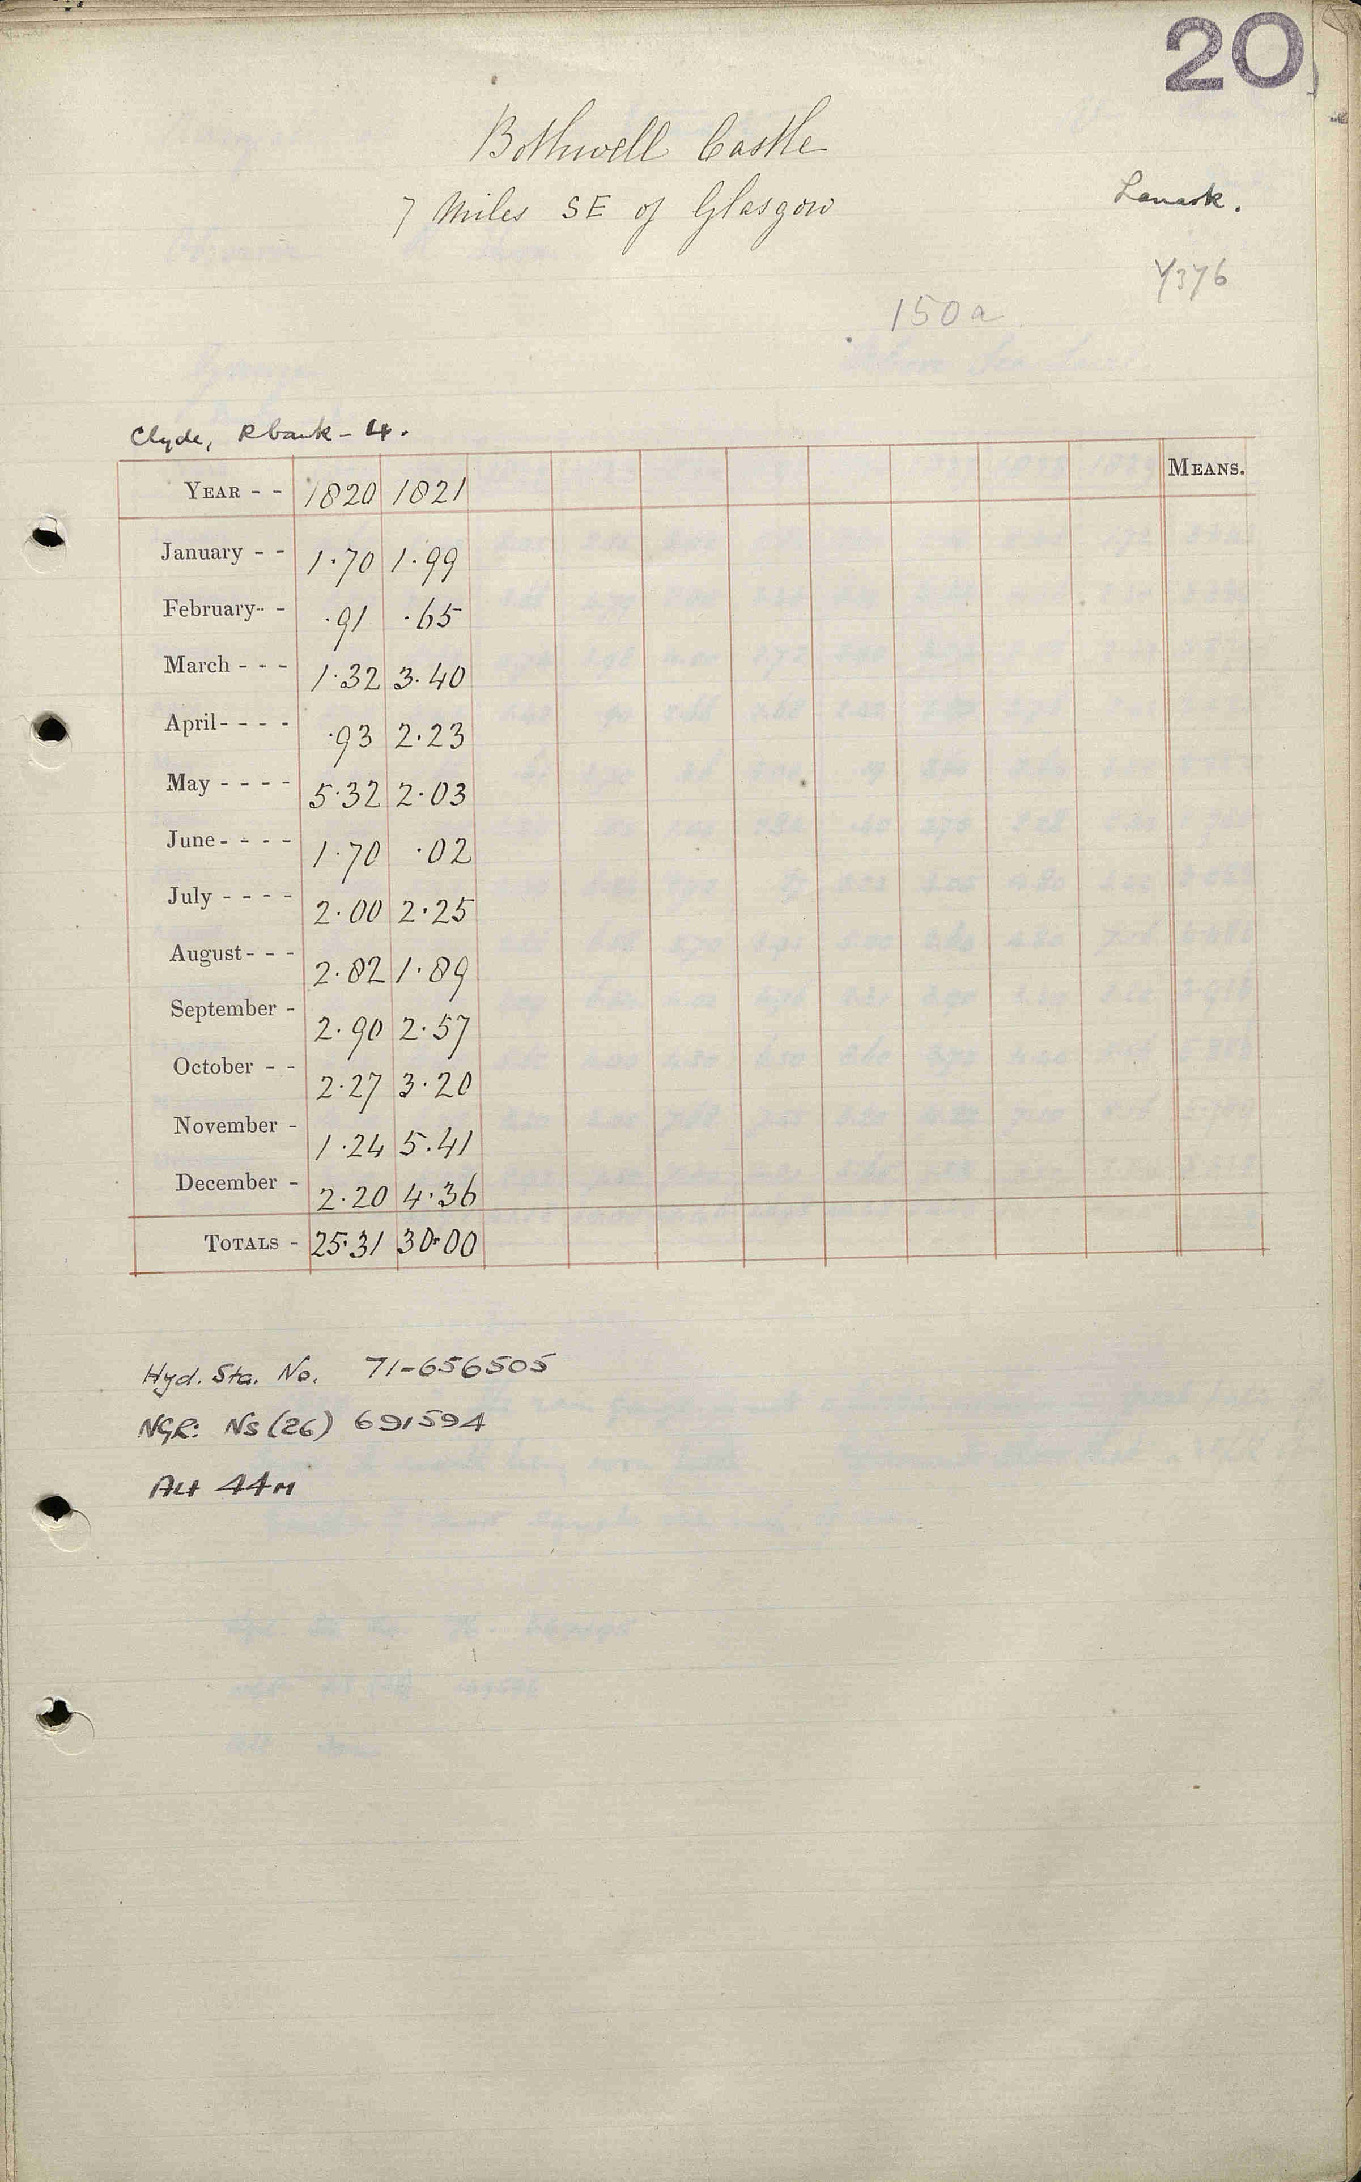 20
Bothwell Castle
7 Miles SE of Glasgow
Lanark.
Y376
150a
Clyde, R bank - 4.
YEAR - - 1820 1821 MEANS.
January - - 1.70 1.99
February - - .91 .65
March - - - 1.32 3.40
April - - - - .93 2.23
May - - - - 5.32 2.03
June - - - - 1.70 .02
July - - - - 2.00 2.25
August - - - 2.82 1.89
September - 2.90 2.57
October - - 2.27 3.20
November - 1.24 5.41
December - 2.20 4.36
TOTALS - 25.31 30.00
Hyd. Sta. No. 71-656505
NGR: NS (26) 691594
Alt 44m